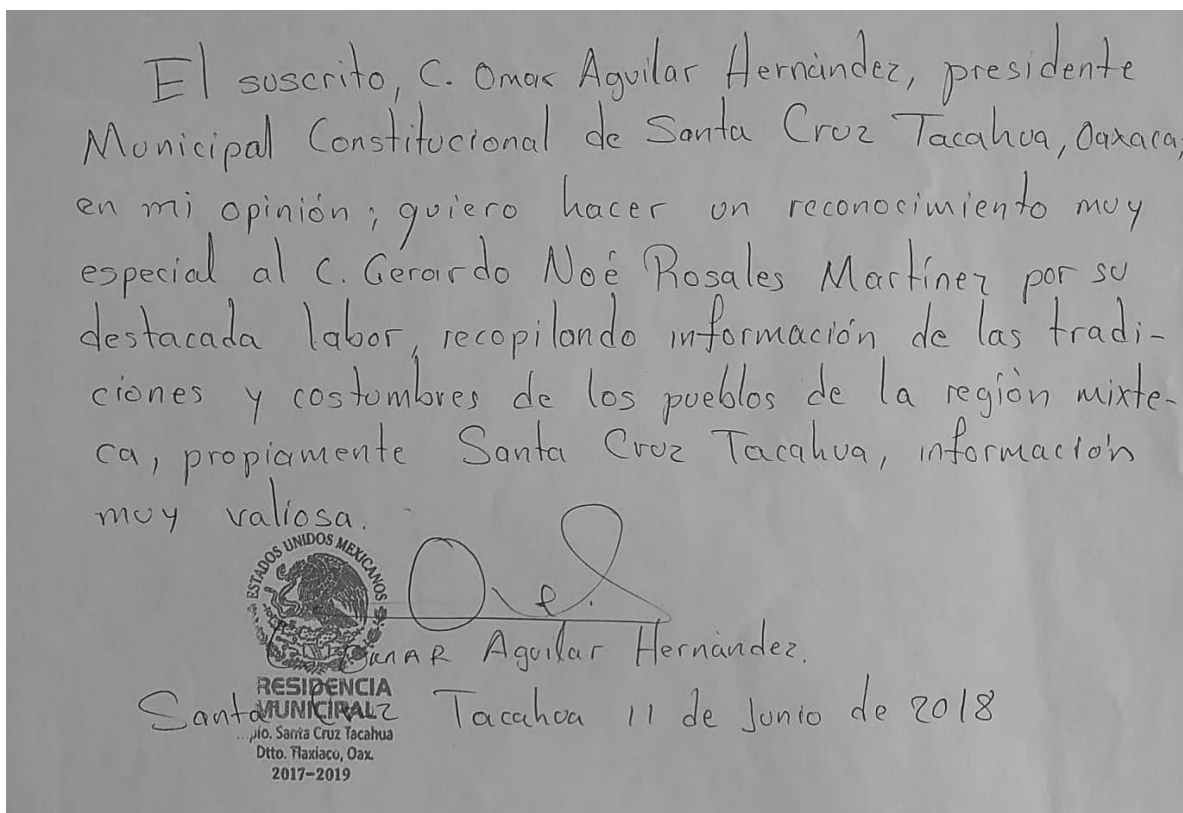 El suscrito, C. Omar Aguilar Hernández, presidente
Municipal Constitucional de Santa Cruz Tacahua, Oaxaca;
en mi opinión; quiero hacer un reconocimiento muy
especial al C. Gerardo Noé Rosales Martínez por su
destacada labor, recopilando información de las tradi-
ciones y costumbres de los pueblos de la región mixte-
ca, propiamente Santa Cruz Tacahua, información
muy valiosa.
ESTADOS UNIDOS MEXICANOS
OMAR Aguilar Hernández.
RESIDENCIA
MUNICIPAL
Santa Cruz Tacahua 11 de Junio de 2018
...pio. Santa Cruz Tacahua
Dtto. Tlaxiaco, Oax.
2017-2019